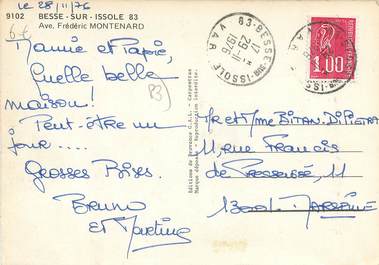 Le 28/11/76
9102 BESSE - SUR - ISSOLE 83
Ave. Frédéric MONTENARD
Mamie et Papie,
Quelle belle
maison!
Peut-être un
jour....
Grosses Bises.
Bruno
et Martine
83
Editions de Provence
Marque déposée
83-BESSE-SUR-ISSOLE
VAR
17H
29-11
1976
1,00
Mr et Mme BITAN. DI PIETRA
11, rue Francis
de Pressensé, 11
13001. MARSEILLE